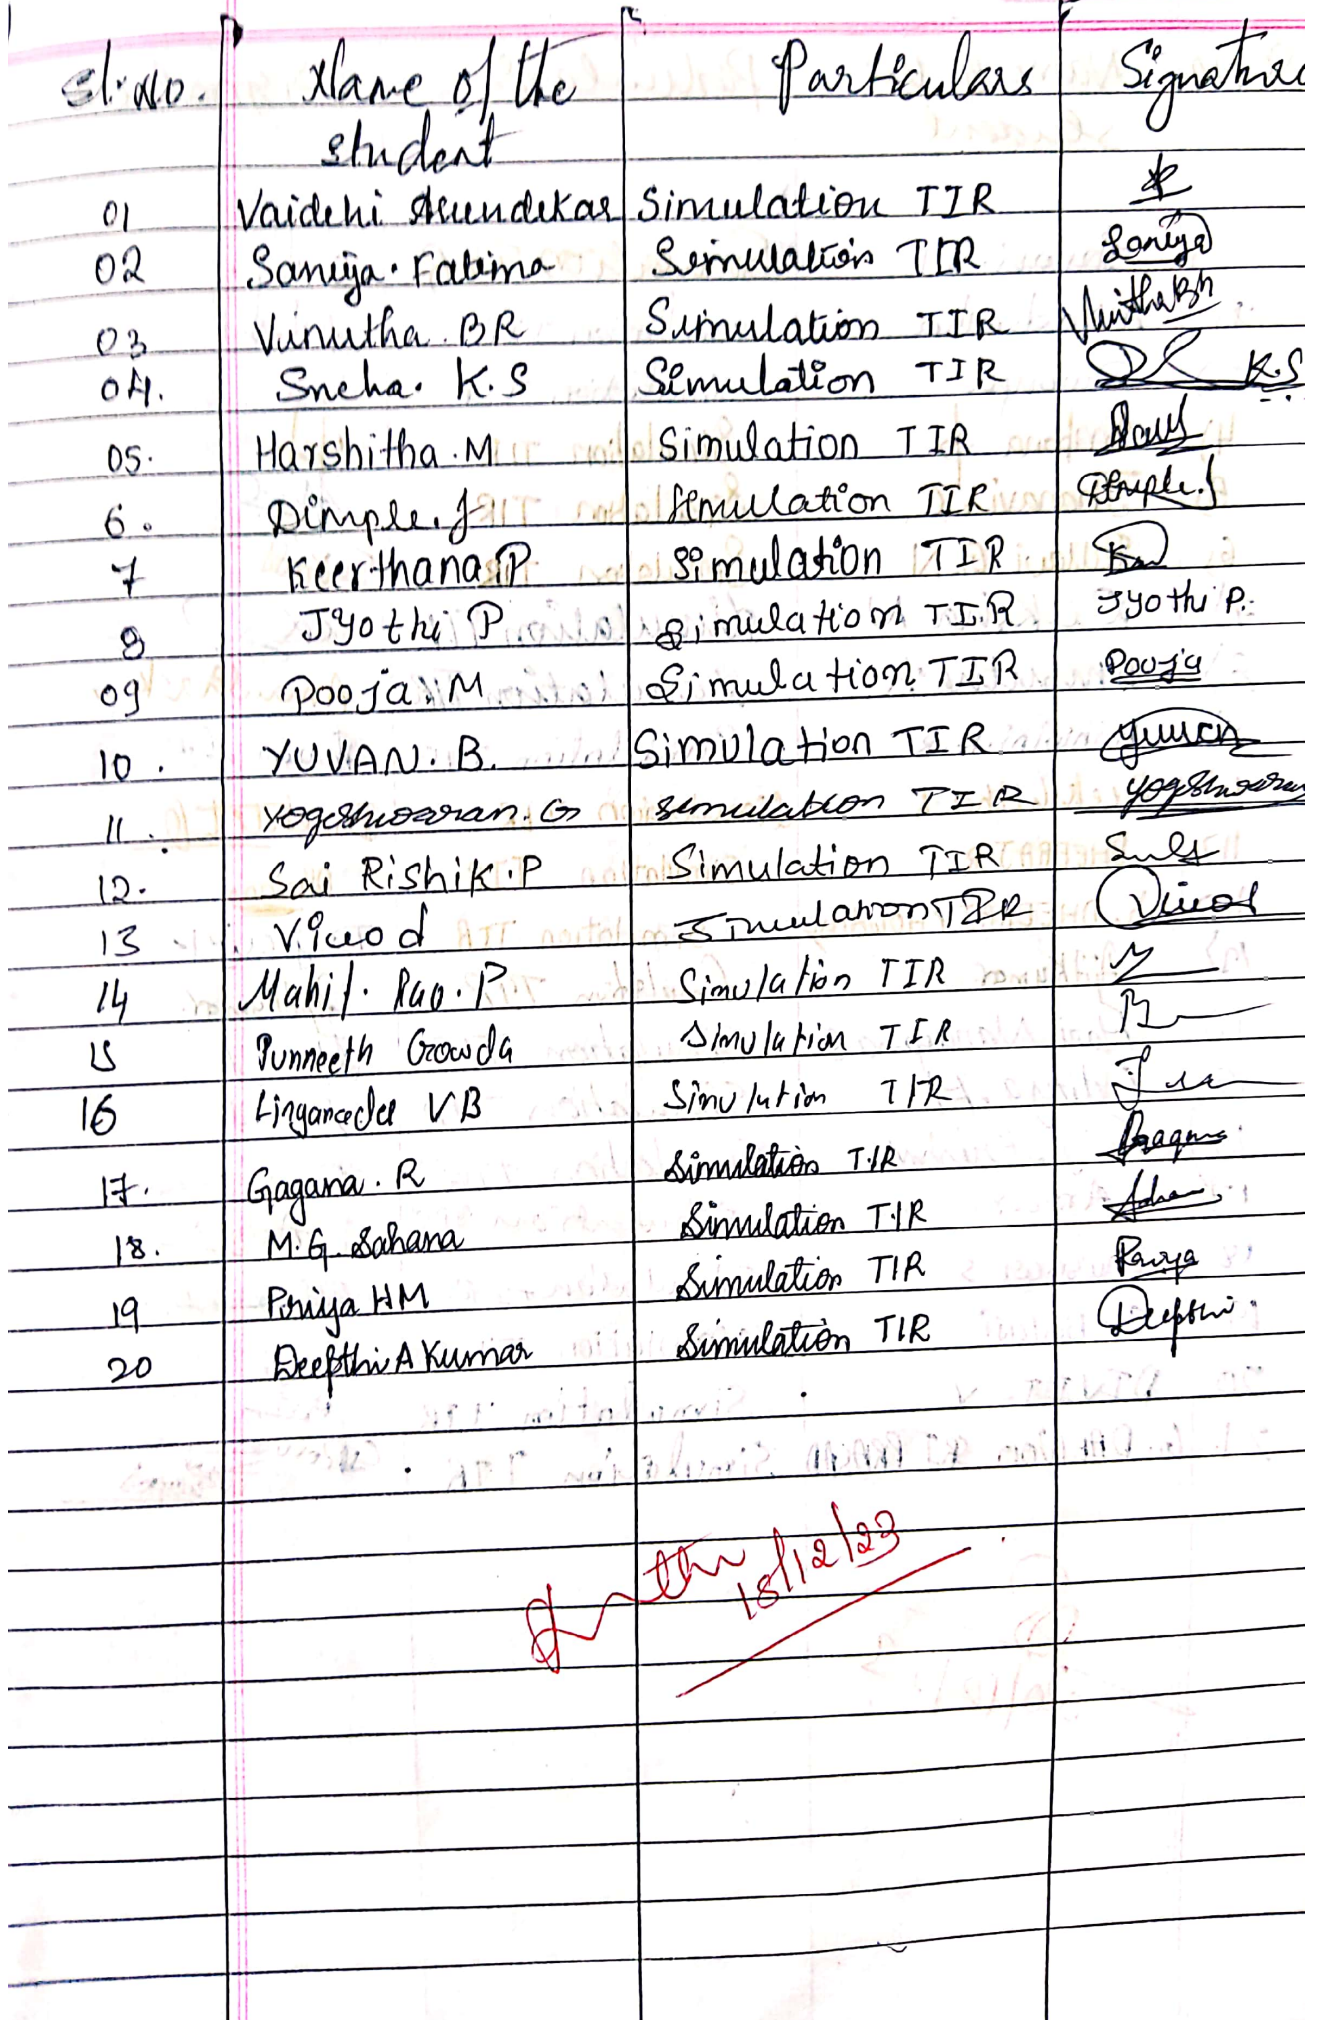 Sl. No. Name of the student Particulars Signature
01 Vaidehi Simulation TIR
02 Saniya. Fatima Simulation TIR Saniya
03 Vinutha. BR Simulation TIR
04. Sneha. K.S Simulation TIR K.S
05. Harshitha. M Simulation TIR
6. Dimple. J Simulation TIR Dimple. J
7 Keerthana P Simulation TIR
8 Jyothi P Simulation T.I.R Jyothi P.
09 Pooja. M Simulation TIR Pooja
10. YUVAN. B. Simulation TIR Yuvan
11. Yogeshwaran. G Simulation TIR Yogeshwaran
12. Sai Rishik. P Simulation TIR
13 Vinod Simulation TIR Vinod
14 Rao. P Simulation TIR
15 Punneeth Gowda Simulation TIR
16 VB Simulation TIR
17. Gagana. R Simulation TIR
18. M. G. Sahana Simulation TIR
19 Priya HM Simulation TIR Priya
20 Deepthi A Kumar Simulation TIR Deepthi
18/12/23